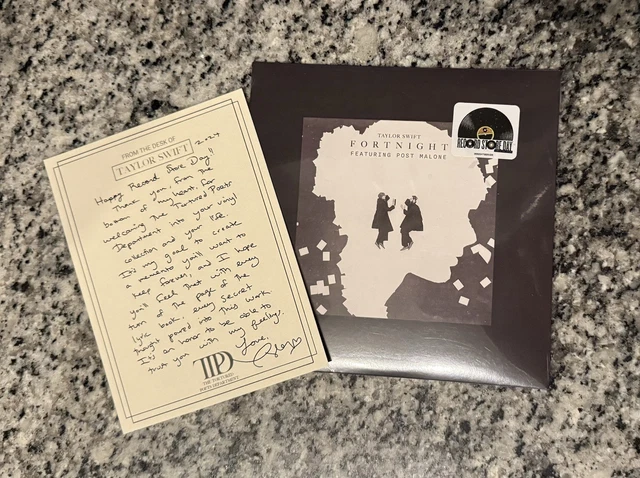 FROM THE DESK OF
TAYLOR SWIFT
Happy Record Store Day!! 2024
Thank you, from the
bottom of my heart, for
welcoming the Tortured Poets
Department into your vinyl
collection and your life.
It's my goal to create
a memento you'll want to
keep forever, and I hope
you'll feel that with every
turn of the page of the
lyric book, every secret
thought poured into this work.
It's an honor to be able to
trust you with my feelings.
Love,
TTPD
THE TORTURED
POETS DEPARTMENT
TAYLOR SWIFT
FORTNIGHT
FEATURING POST MALONE
RECORD STORE DAY